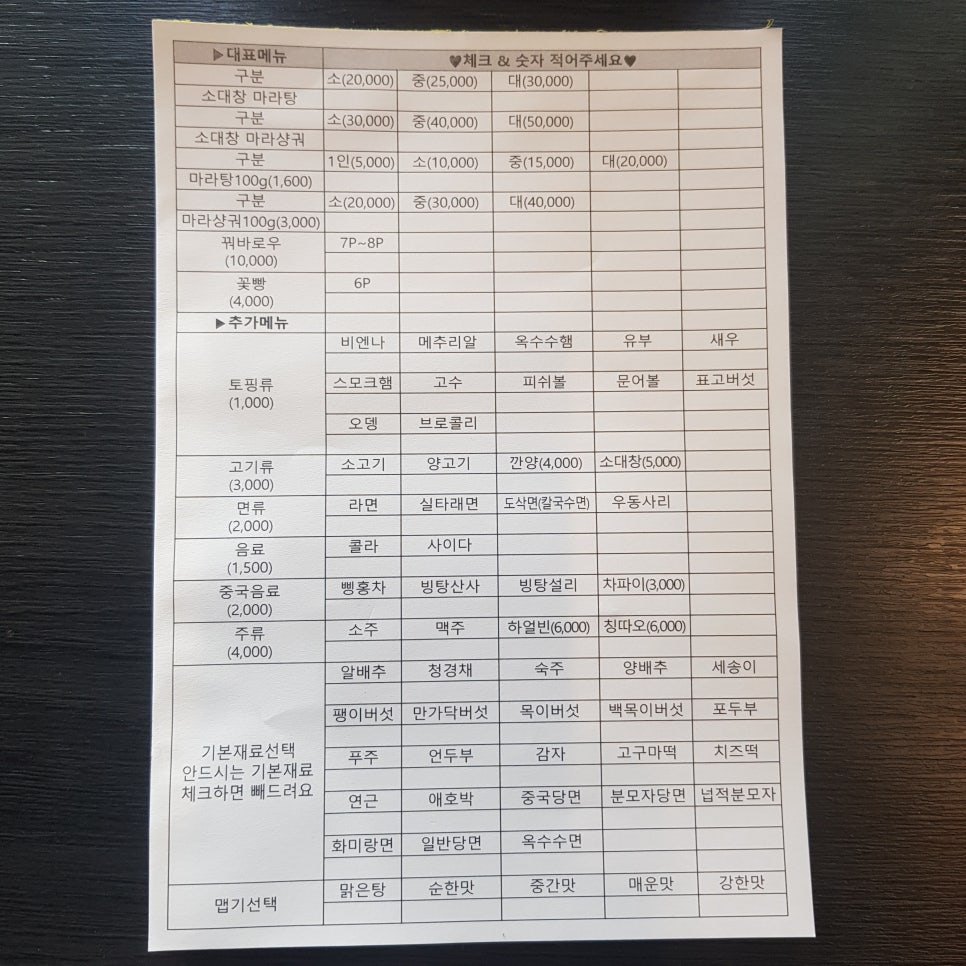 ▶대표메뉴 ♥체크 & 숫자 적어주세요♥
구분 소(20,000) 중(25,000) 대(30,000)
소대창 마라탕
구분 소(30,000) 중(40,000) 대(50,000)
소대창 마라샹궈
구분 1인(5,000) 소(10,000) 중(15,000) 대(20,000)
마라탕100g(1,600)
구분 소(20,000) 중(30,000) 대(40,000)
마라샹궈100g(3,000)
꿔바로우 7P~8P
(10,000)
꽃빵 6P
(4,000)
▶추가메뉴
비엔나 메추리알 옥수수햄 유부 새우
토핑류 스모크햄 고수 피쉬볼 문어볼 표고버섯
(1,000)
오뎅 브로콜리
고기류 소고기 양고기 깐양(4,000) 소대창(5,000)
(3,000)
면류 라면 실타래면 도삭면(칼국수면) 우동사리
(2,000)
음료 콜라 사이다
(1,500)
중국음료 삥홍차 빙탕산사 빙탕설리 차파이(3,000)
(2,000)
주류 소주 맥주 하얼빈(6,000) 칭따오(6,000)
(4,000)
알배추 청경채 숙주 양배추 세송이
팽이버섯 만가닥버섯 목이버섯 백목이버섯 포두부
기본재료선택 푸주 언두부 감자 고구마떡 치즈떡
안드시는 기본재료
체크하면 빼드려요 연근 애호박 중국당면 분모자당면 넙적분모자
화미랑면 일반당면 옥수수면
맵기선택 맑은탕 순한맛 중간맛 매운맛 강한맛